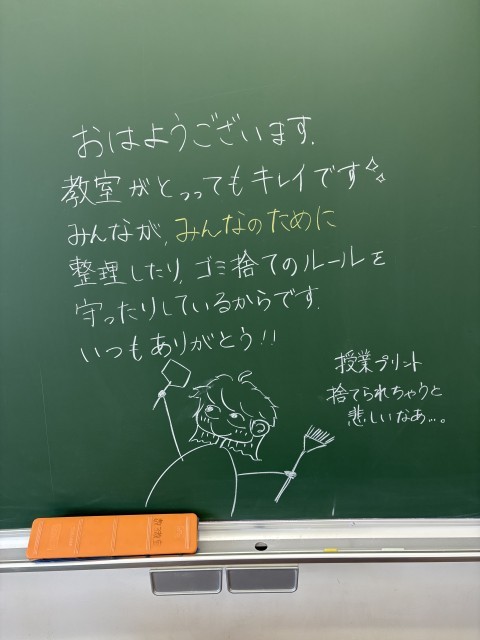 おはようございます.
教室がとっってもキレイです
みんなが,みんなのために
整理したり,ゴミ捨てのルールを
守ったりしているからです.
いつもありがとう!!
授業プリント
捨てられちゃうと
悲しいなあ...。